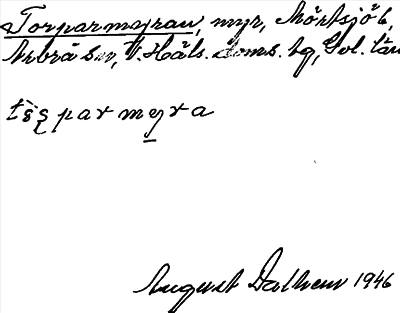 Torparmyran, myr, Mörtsjö b,
Arbrå sn, V. Häls. doms. hg, Gvl. län
parmyra
August Dalhem 1946